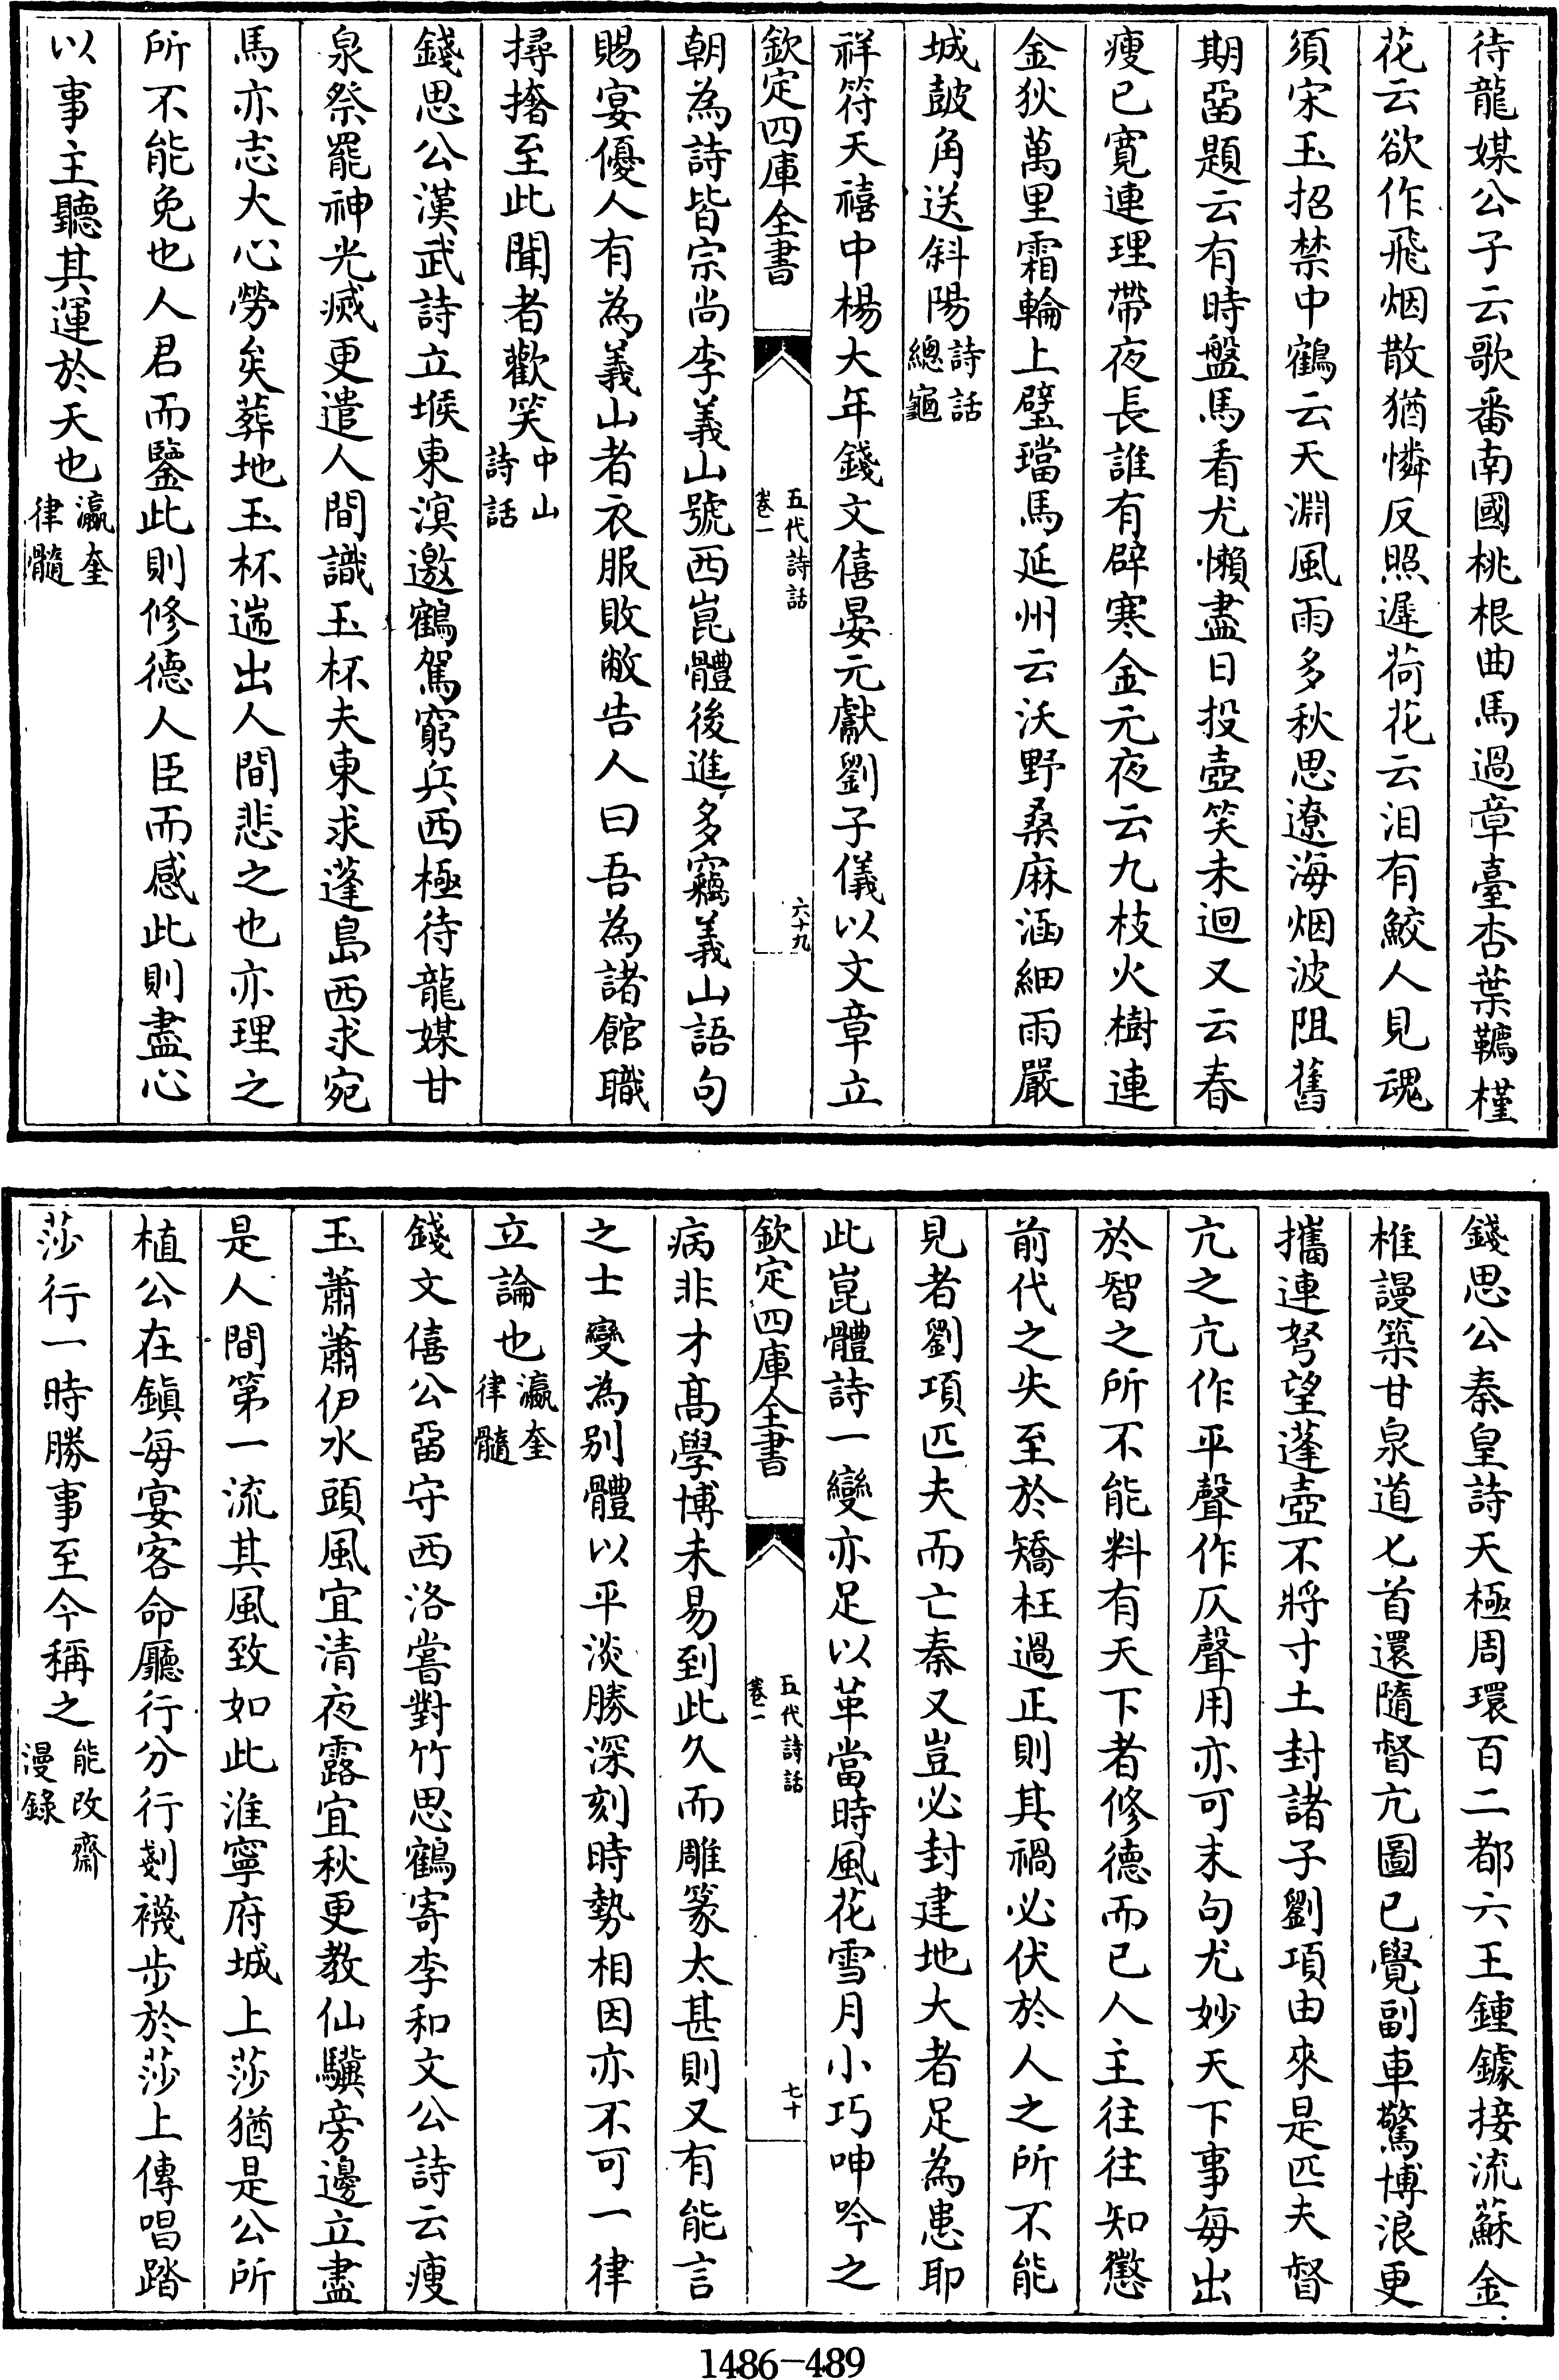 待龍媒公子云歌番南國桃根曲馬過章臺杏葉韉槿
花云欲作飛烟散猶憐反照遲荷花云泪有鮫人見魂
須宋玉招禁中鶴云天淵風雨多秋思遼海烟波阻舊
期畱題云有時盤馬看尤懶盡日投壺笑未迴又云春
瘦已寛連理帶夜長誰有辟寒金元夜云九枝火樹連
金狄萬里霜輪上璧璫馬延州云沃野桑麻涵細雨嚴
城鼓角送斜陽詩話總龜
祥符天禧中楊大年錢文僖晏元獻劉子儀以文章立
欽定四庫全書 五代詩話 卷一 六十九
朝為詩皆宗尚李義山號西崑體後進多竊義山語句
賜宴優人有為義山者衣服敗敝告人曰吾為諸館職
撏撦至此聞者歡笑中山詩話
錢思公漢武詩立堠東溟邀鶴駕窮兵西極待龍媒甘
泉祭罷神光滅更遣人間識玉杯夫東求蓬島西求宛
馬亦志大心勞矣葬地玉杯遄出人間悲之也亦理之
所不能免也人君而鑒此則修德人臣而感此則盡心
以事主聽其運於天也瀛奎律髓
錢思公秦皇詩天極周環百二都六王鍾鐻接流蘇金
椎謾築甘泉道匕首還隨督亢圖已覺副車驚博浪更
攜連弩望蓬壺不將寸土封諸子劉項由來是匹夫督
亢之亢作平聲作仄聲用亦可末句尤妙天下事每出
於智之所不能料有天下者修德而已人主往往知懲
前代之失至於矯枉過正則其禍必伏於人之所不能
見者劉項匹夫而亡秦又豈必封建地大者足為患耶
此崑體詩一變亦足以革當時風花雪月小巧呻吟之
欽定四庫全書 五代詩話 卷一 七十
病非才髙學博未易到此久而雕篆太甚則又有能言
之士變為别體以平淡勝深刻時勢相因亦不可一律
立論也瀛奎律髓
錢文僖公畱守西洛嘗對竹思鶴寄李和文公詩云瘦
玉蕭蕭伊水頭風宜清夜露宜秋更教仙驥旁邊立盡
是人間第一流其風致如此淮寧府城上莎猶是公所
植公在鎮每宴客命廳行分行剗襪步於莎上傳唱踏
莎行一時勝事至今稱之能改齋漫錄
1486-489